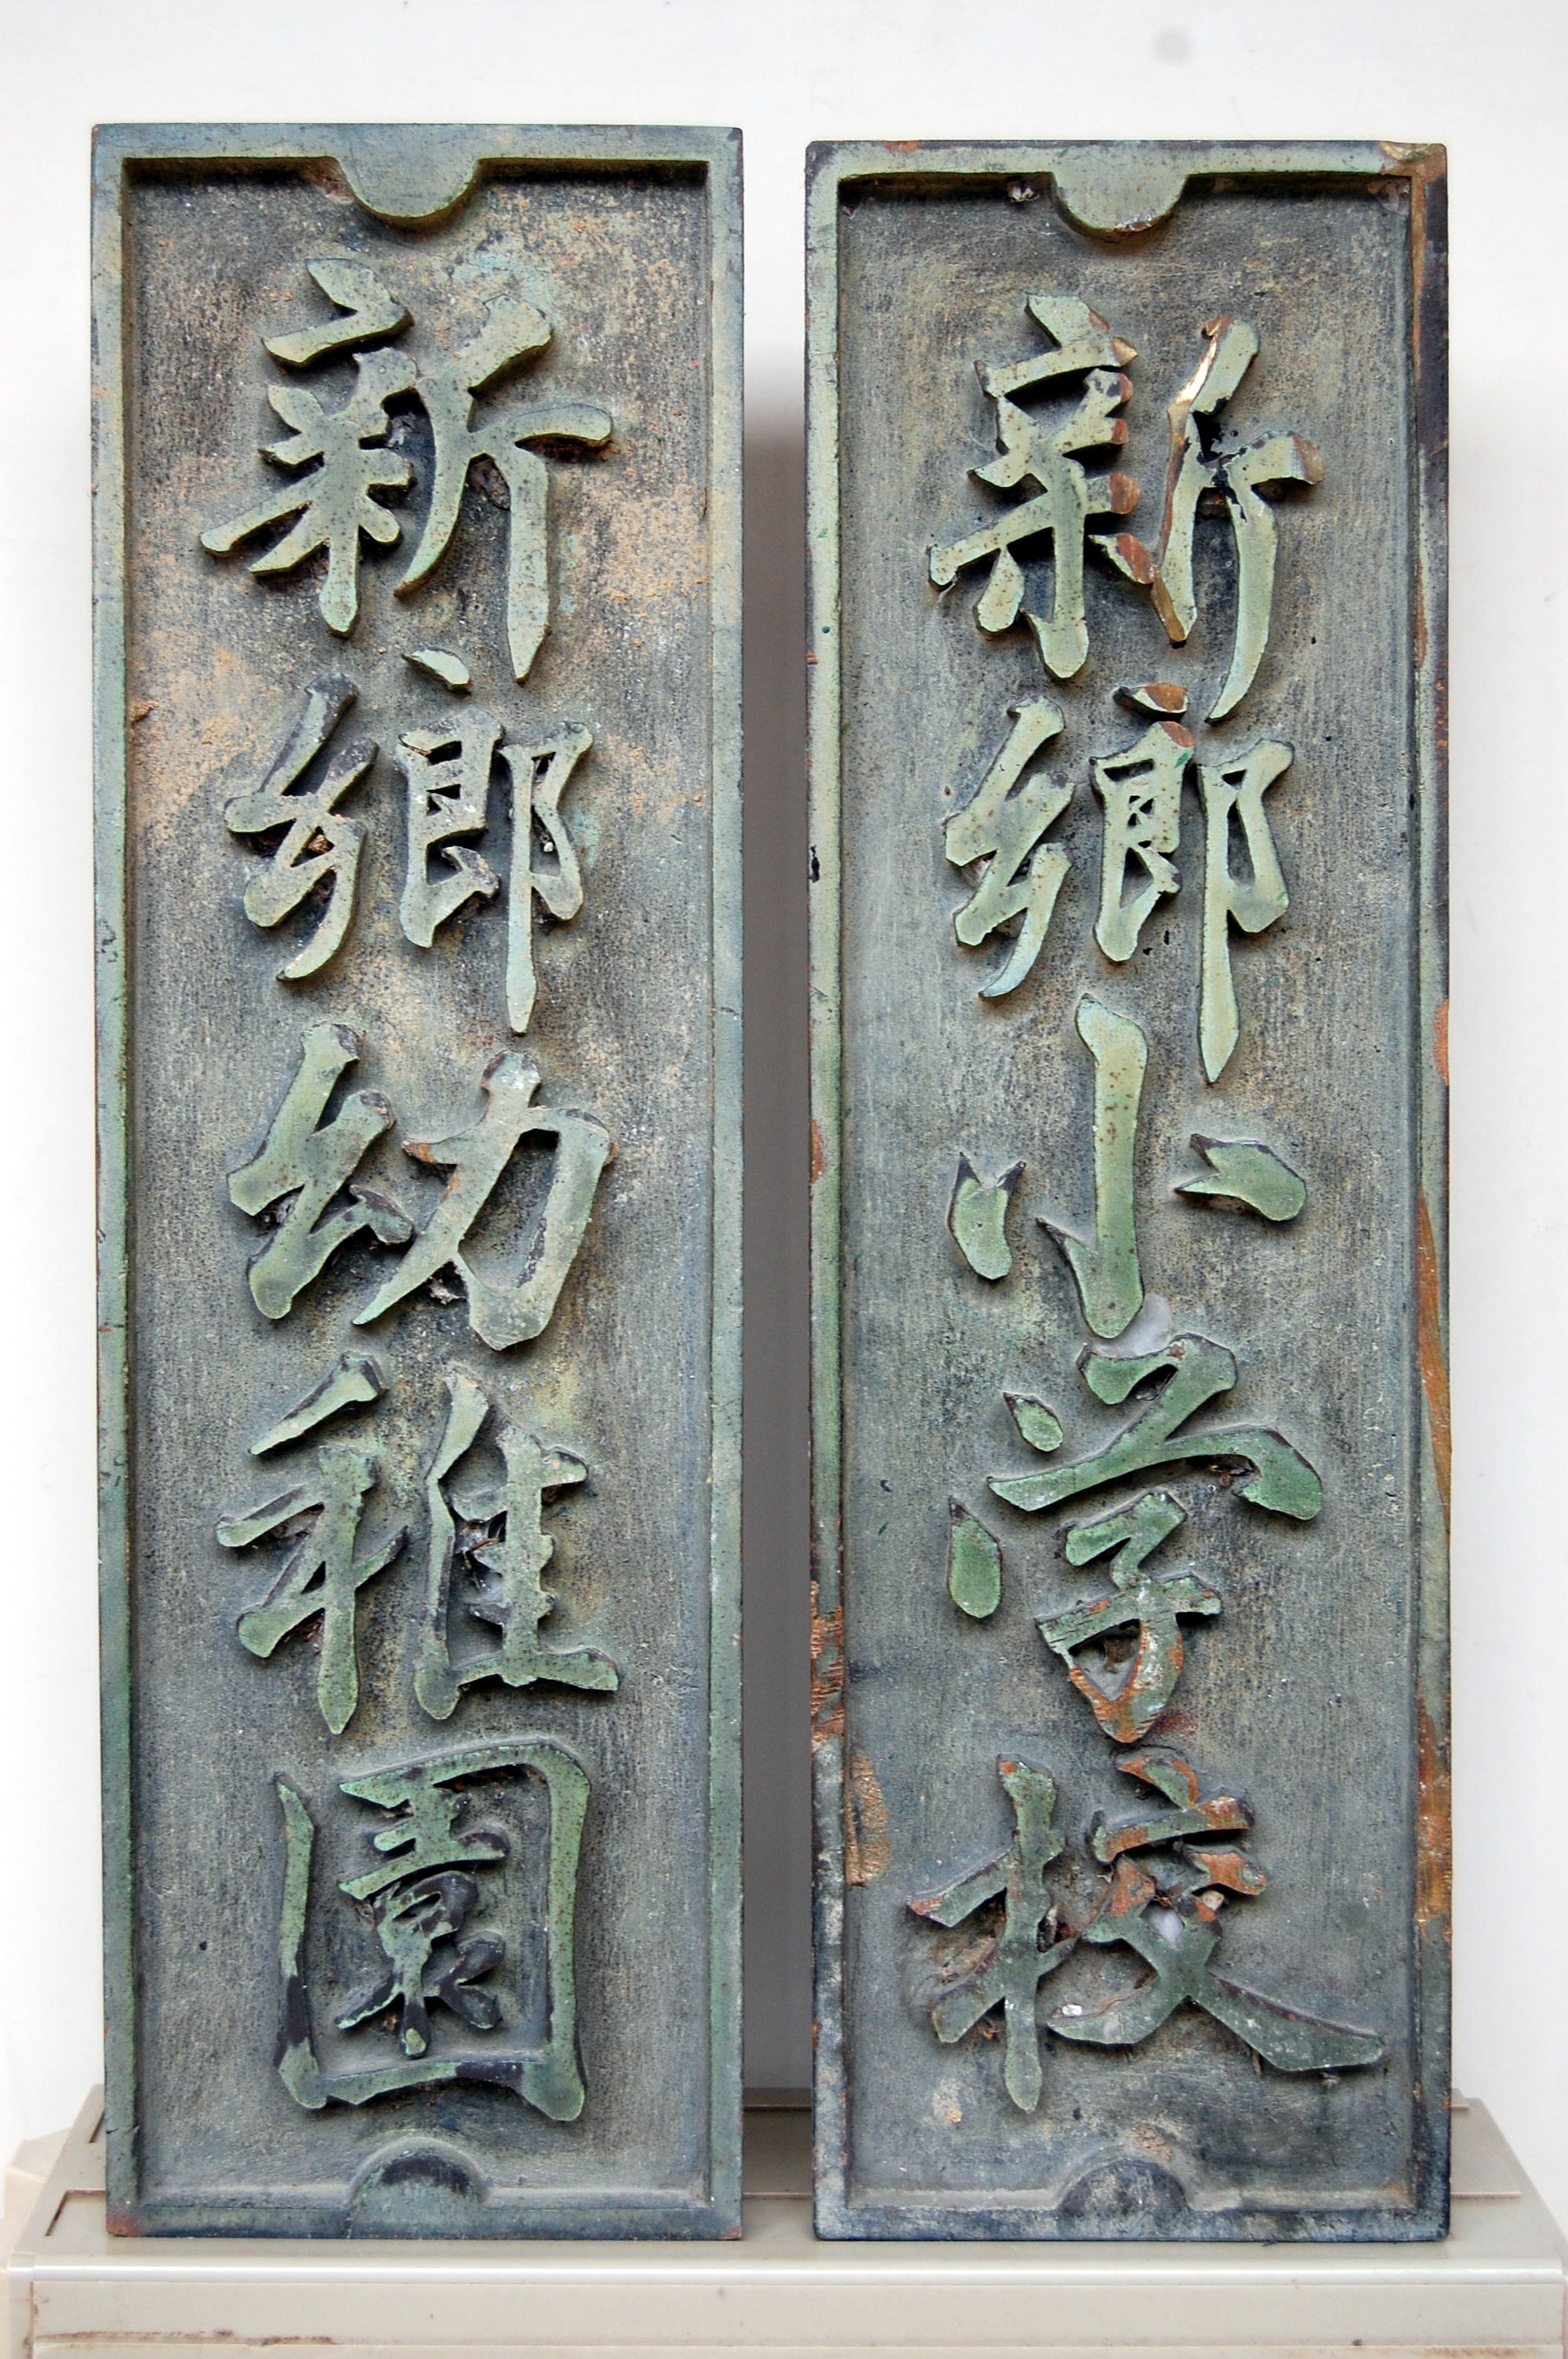 新郷小学校
新郷幼稚園